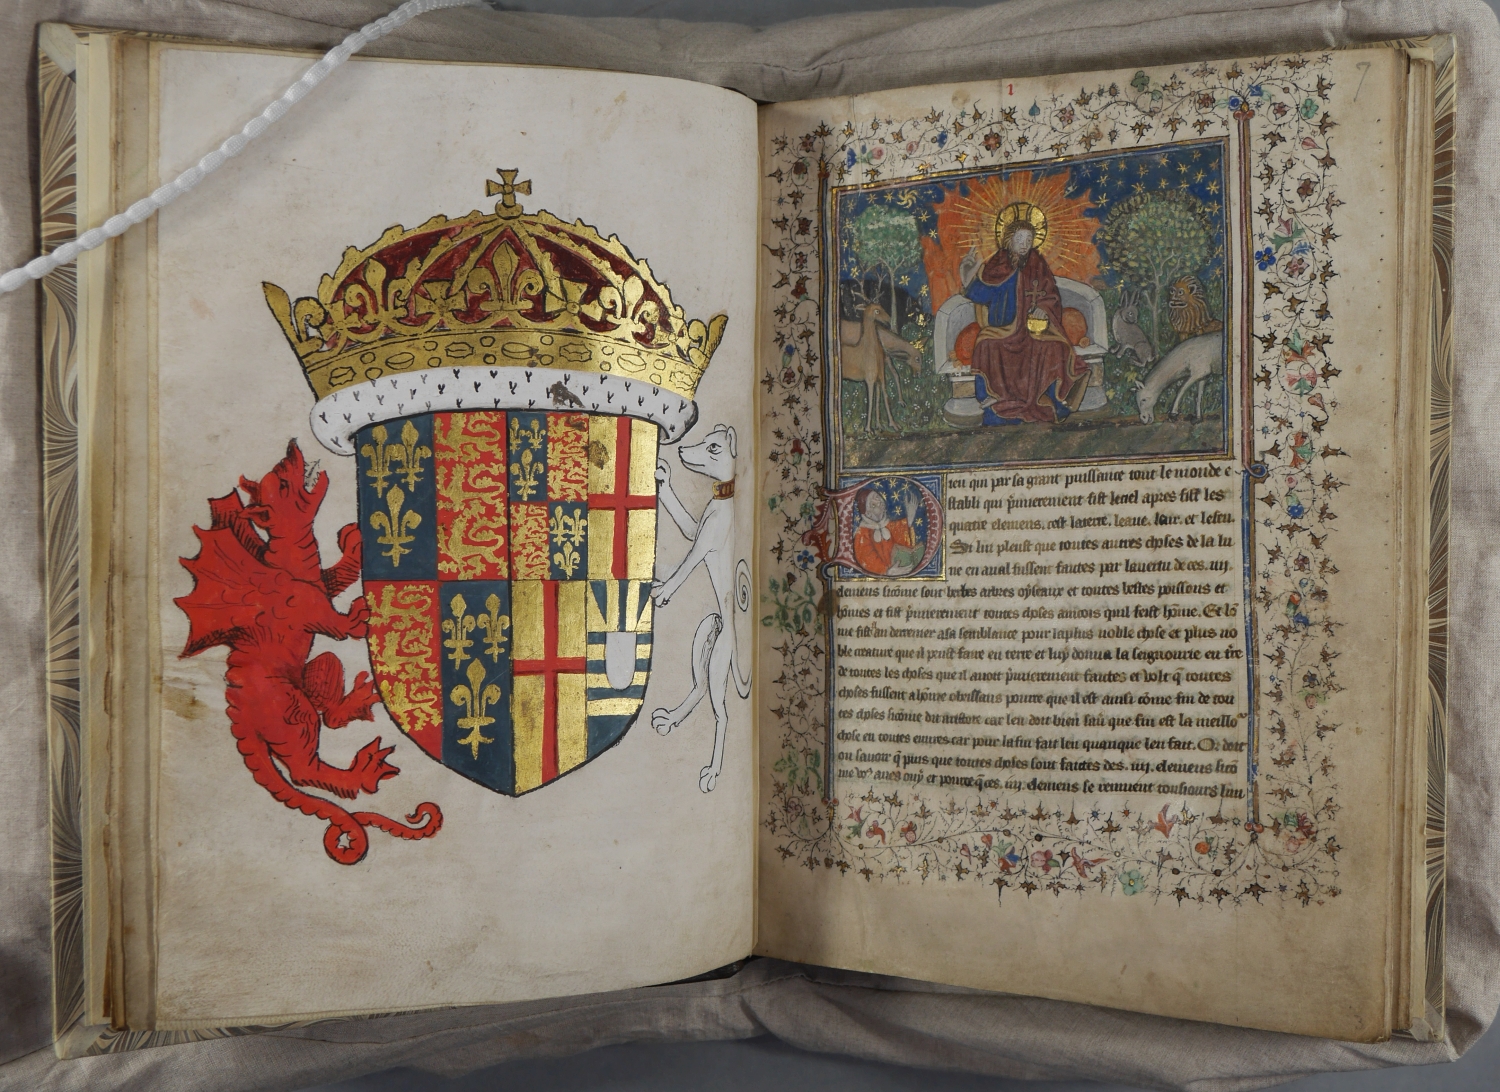 1
7
Dieu qui par sa grant puissance tout le monde e
stabli qui p̃mierement fist le ciel apres fist les
quatre elemens. cest la terre. leaue. lair. et le feu.
Si lui pleust que toutes autres choses de la lu
ne en aual fussent faites par la uertu de ces .iiij.
elemens sicõme sont herbes arbres oyseaux et toutes bestes poissons et
hõmes et fist p̃mierement toutes choses aincois quil feist hõme. Et hõ
me fist au derrenier a sa semblance pour la plus noble chose et plus no
ble creature que il peust faire en terre et luy donna la seignourie en t̃re
de toutes les choses que il auoit p̃mierement faictes et volt q̃ toutes
choses fussent a hõme obeissans pource que il est ainsi cõme fin de tou
tes choses sicõme dit aristote car len doit bien sau que fin est la meillo
chose en toutes euures car pour la fin fait len quanque len fait. Or doit
on sauoir q̃ puis que toutes choses sont faictes des .iiij. elemens sicõ
me vo⁹ aues ouy et pource q̃ ces .iiij. elemens se remuent tousiours lun